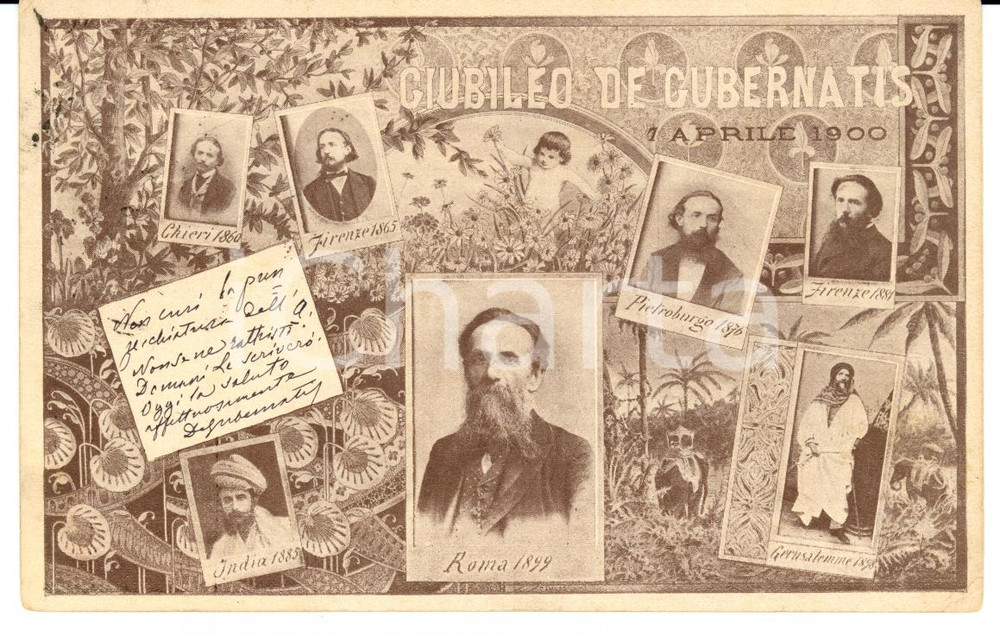 GIUBILEO DE GUBERNATIS
7 APRILE 1900
Chieri 1860
Firenze 1865
Pietroburgo 1876
Firenze 1881
Non curi la pun
zecchiatura dell' A.
Non se ne rattristi.
Domani Le scriverò.
Oggi la saluto
affettuosamente
Degubernatis
India 1885
Roma 1899
Gerusalemme 1898
Charta